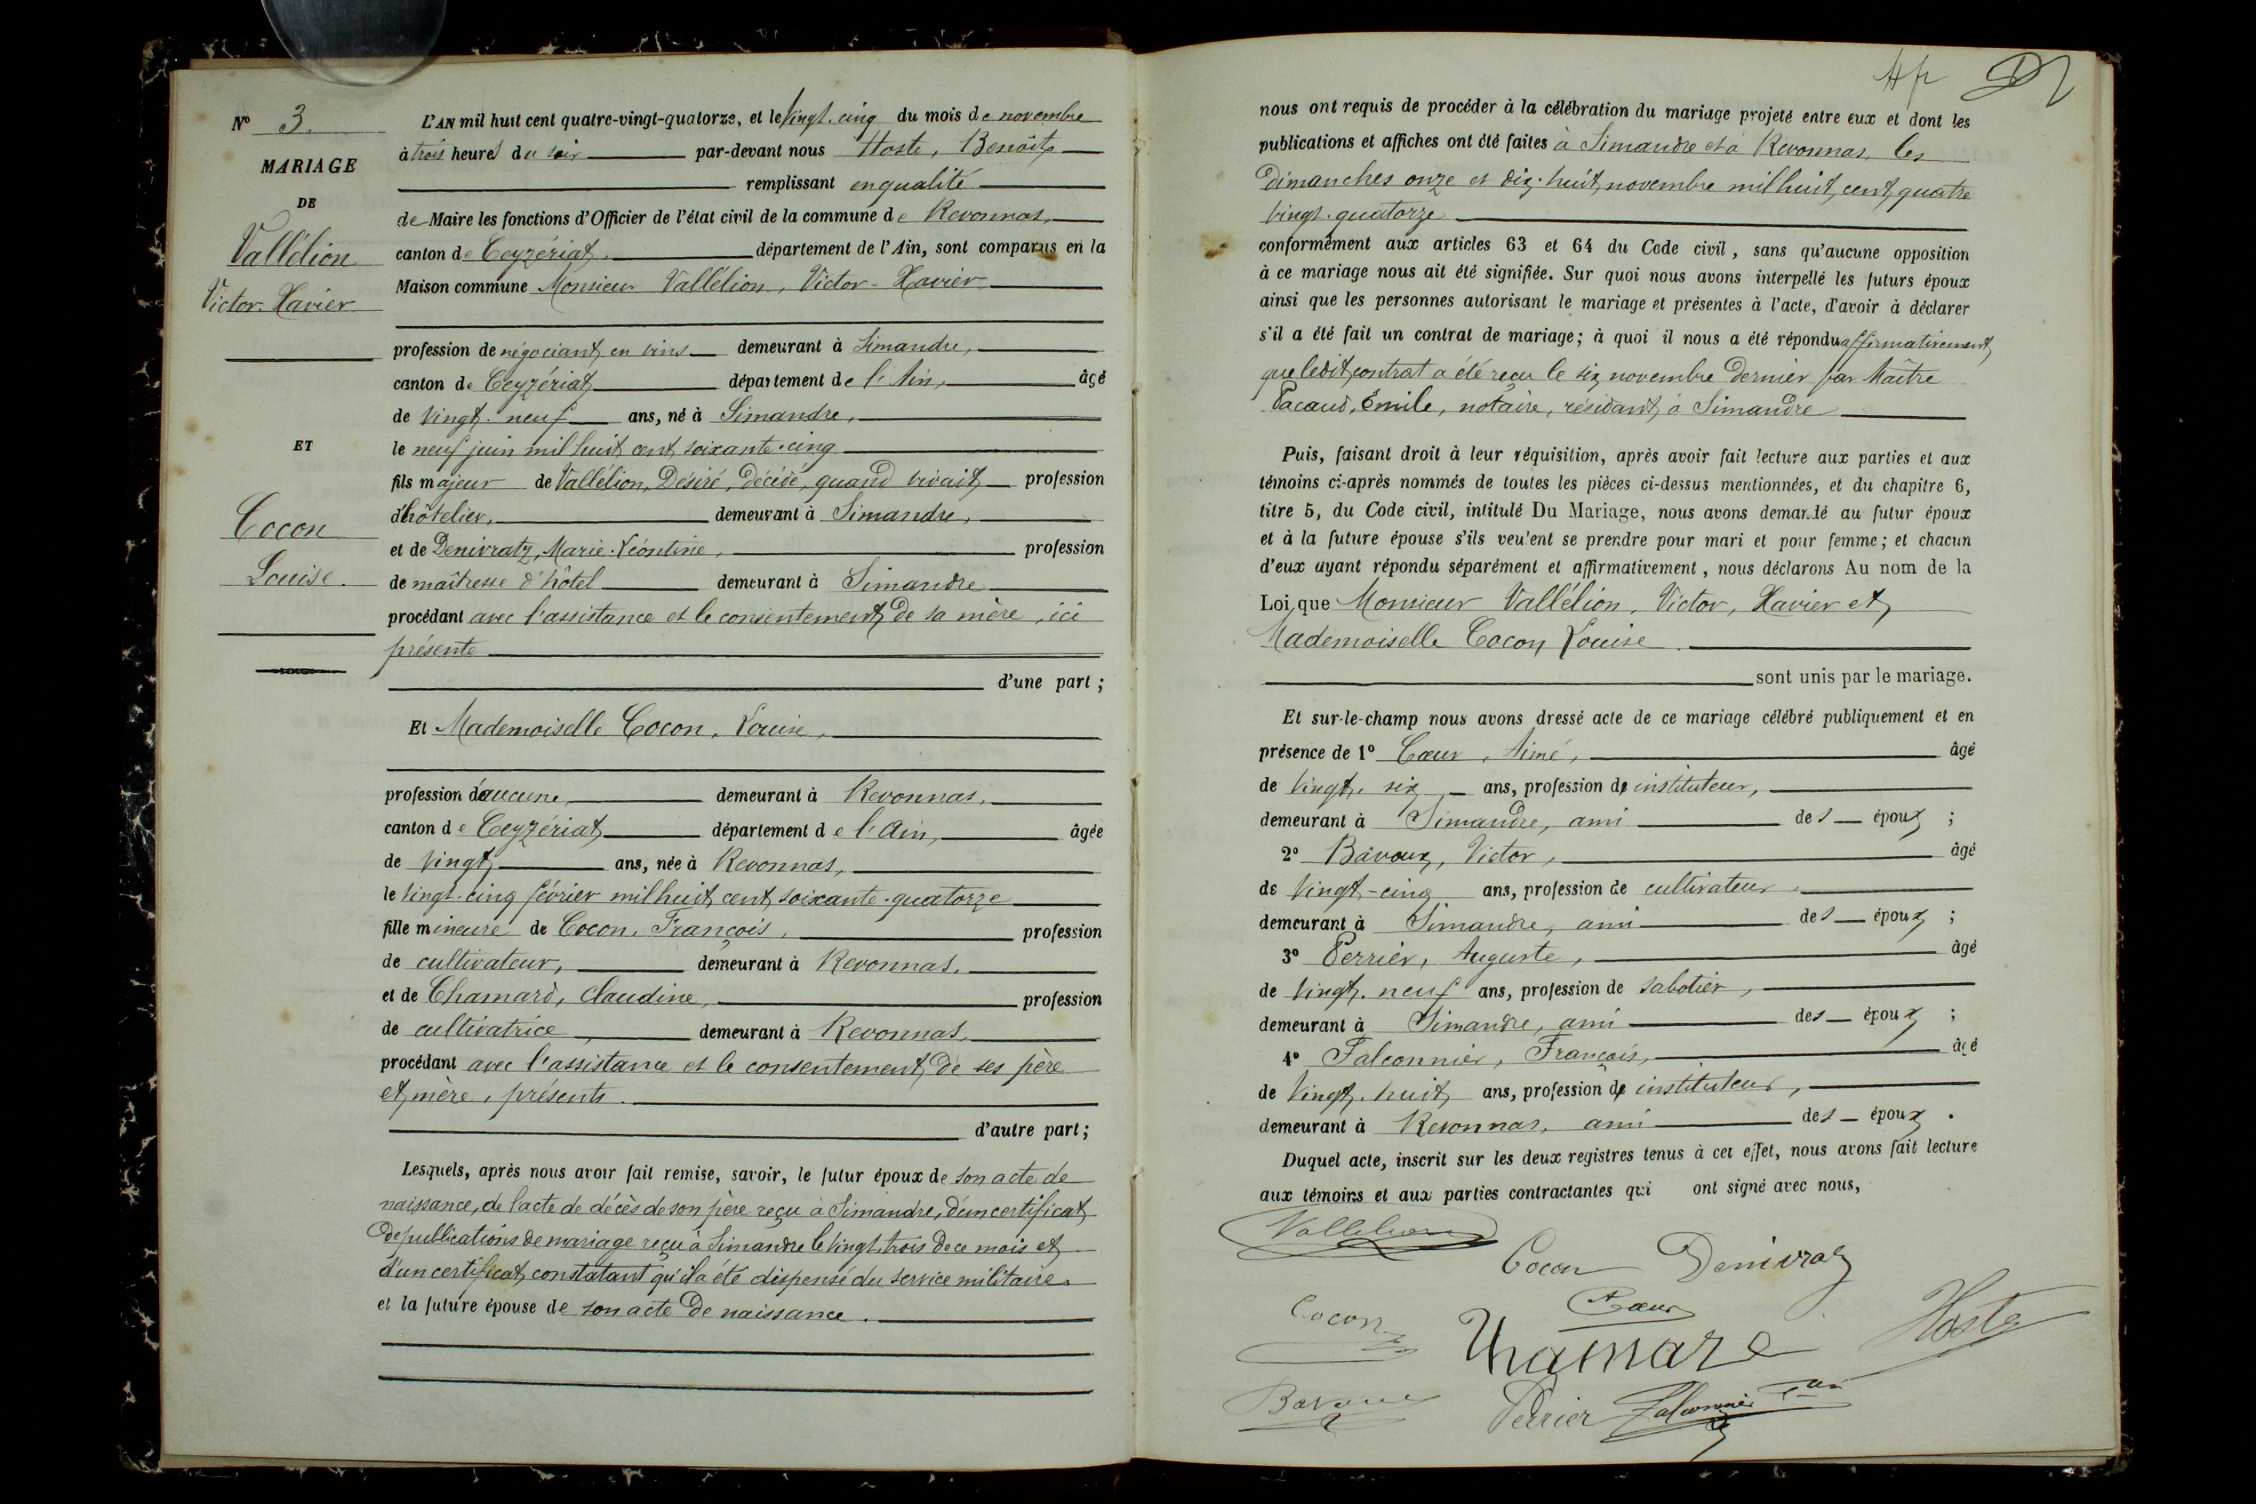 N° 3.
MARIAGE
DE
Vallélion
Victor-Xavier
ET
Cocon
Louise.
L'AN mil huit cent quatre-vingt-quatorze, et le vingt-cinq du mois de novembre
à trois heures du soir par-devant nous Hoste, Benoît
remplissant en qualité
de Maire les fonctions d'Officier de l'état civil de la commune de Revonnas,
canton de Ceyzériat, département de l'Ain, sont comparus en la
Maison commune Monsieur Vallélion, Victor-Xavier
profession de négociant en vins demeurant à Simandre,
canton de Ceyzériat département de l'Ain, âgé
de vingt-neuf ans, né à Simandre,
le neuf juin mil huit cent soixante-cinq
fils majeur de Vallélion, Désiré, décédé, quand vivait profession
d'hôtelier, demeurant à Simandre,
et de Denivratz, Marie-Léontine, profession
de maîtresse d'hôtel demeurant à Simandre
procédant avec l'assistance et le consentement de sa mère, ici
présente
d'une part ;
Et Mademoiselle Cocon, Louise,
profession d'aucune, demeurant à Revonnas,
canton de Ceyzériat département de l'Ain, âgée
de vingt ans, née à Revonnas,
le vingt-cinq février mil huit cent soixante-quatorze
fille mineure de Cocon, François, profession
de cultivateur, demeurant à Revonnas,
et de Chamard, Claudine, profession
de cultivatrice, demeurant à Revonnas,
procédant avec l'assistance et le consentement de ses père
et mère, présents.
d'autre part ;
Lesquels, après nous avoir fait remise, savoir, le futur époux de son acte de
naissance, de l'acte de décès de son père reçu à Simandre, d'un certificat
de publications de mariage reçu à Simandre le vingt-trois de ce mois et
d'un certificat constatant qu'il a été dispensé du service militaire.
et la future épouse de son acte de naissance.
nous ont requis de procéder à la célébration du mariage projeté entre eux et dont les
publications et affiches ont été faites à Simandre et à Revonnas, les
dimanches onze et dix-huit novembre mil huit cent quatre
vingt-quatorze
conformément aux articles 63 et 64 du Code civil, sans qu'aucune opposition
à ce mariage nous ait été signifiée. Sur quoi nous avons interpellé les futurs époux
ainsi que les personnes autorisant le mariage et présentes à l'acte, d'avoir à déclarer
s'il a été fait un contrat de mariage ; à quoi il nous a été répondu affirmativement,
que ledit contrat a été reçu le six novembre dernier par Maître
Pacaud, Émile, notaire, résidant à Simandre
Puis, faisant droit à leur réquisition, après avoir fait lecture aux parties et aux
témoins ci-après nommés de toutes les pièces ci-dessus mentionnées, et du chapitre 6,
titre 5, du Code civil, intitulé Du Mariage, nous avons demandé au futur époux
et à la future épouse s'ils veulent se prendre pour mari et pour femme ; et chacun
d'eux ayant répondu séparément et affirmativement, nous déclarons Au nom de la
Loi, que Monsieur Vallélion, Victor, Xavier et
Mademoiselle Cocon Louise
sont unis par le mariage.
Et sur-le-champ nous avons dressé acte de ce mariage célébré publiquement et en
présence de 1° Cœur, Aimé, âgé
de vingt-six ans, profession de instituteur,
demeurant à Simandre, ami des époux ;
2° Bavoux, Victor, âgé
de vingt-cinq ans, profession de cultivateur,
demeurant à Simandre, ami des époux ;
3° Perrier, Auguste, âgé
de vingt-neuf ans, profession de sabotier,
demeurant à Simandre, ami des époux ;
4° Falconnier, François, âgé
de vingt-huit ans, profession de instituteur,
demeurant à Revonnas, ami des époux.
Duquel acte, inscrit sur les deux registres tenus à cet effet, nous avons fait lecture
aux témoins et aux parties contractantes qui ont signé avec nous,
Vallélion
Cocon Denivraz
Cocon Cœur Hoste
Chamard
Bavoux Perrier Falconnier